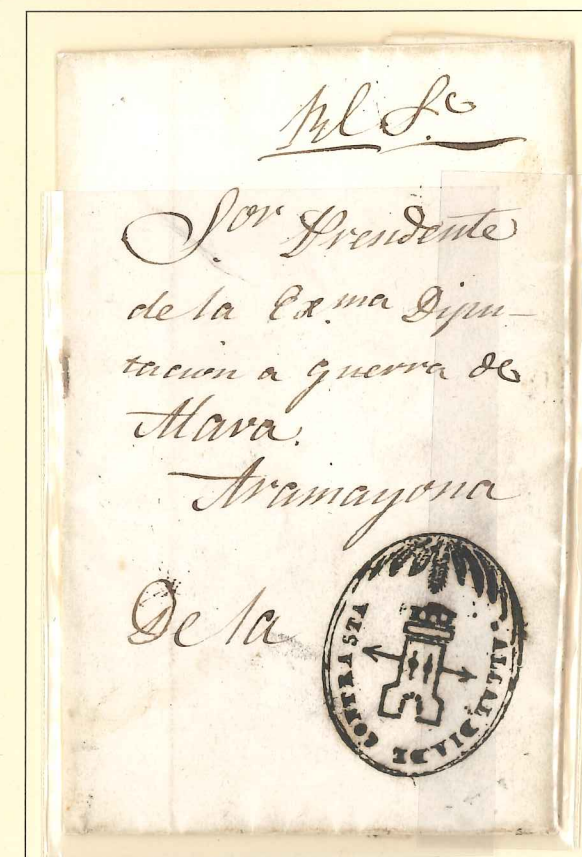 Rl Sº
Sor. Presidente
de la Exma Dipu-
tacion a guerra de
Alava.
Aramayona
De la
ALCALDIA DE CONTRASTA